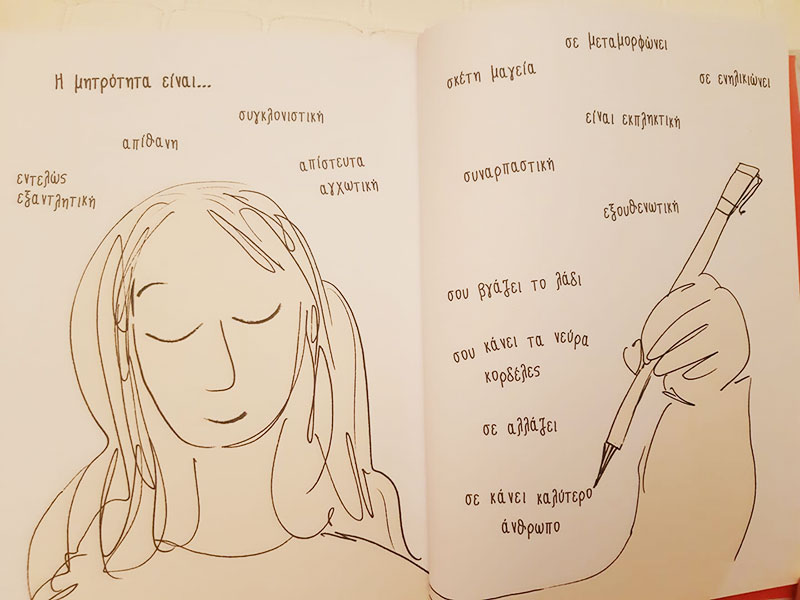 Η μητρότητα είναι...
συγκλονιστική
απίθανη
απίστευτα
αγχωτική
εντελώς
εξαντλητική
σε μεταμορφώνει
σκέτη μαγεία
σε ενηλικιώνει
είναι εκπληκτική
συναρπαστική
εξουθενωτική
σου βγάζει το λάδι
σου κάνει τα νεύρα
κορδέλες
σε αλλάζει
σε κάνει καλύτερο
άνθρωπο